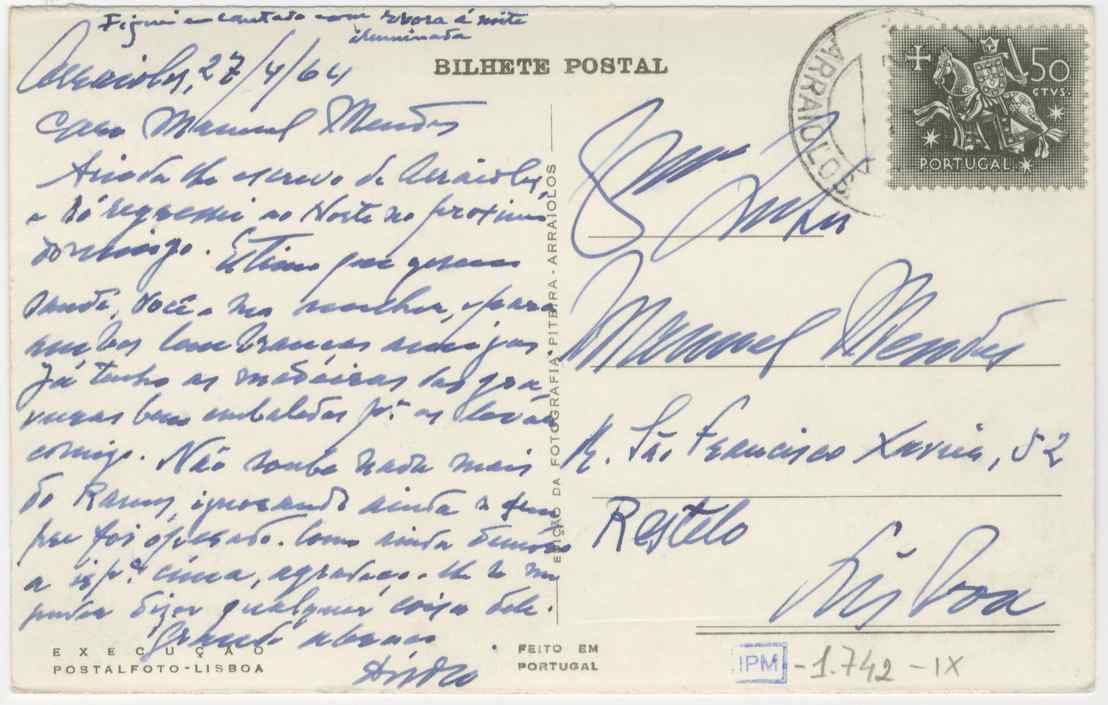 Fiquei encantado com Évora á noite
iluminada
Arraiolos, 27/4/64
BILHETE POSTAL
Caro Manuel Mendes
Ainda lhe escrevo de Arraiolos,
e só regresso ao Norte no proximo
domingo. Estimo que gosem
saude, Você e sua mulher, e para
ambos lembranças amigas
Já tenho as madeiras das gra
vuras bem embaladas pª as levar
comigo. Não soube nada mais
do Ramos, ignorando ainda se sem
pre foi operado. Como ainda demoro
a ir pª cima, agradeço-lhe se me
puder dizer qualquer coisa dele.
Grande abraço
EXECUÇÃO
POSTALFOTO-LISBOA
EDIÇÃO DA FOTOGRAFIA PITEIRA - ARRAIOLOS
FEITO EM
PORTUGAL
ARRAIOLOS
50
CTVS.
PORTUGAL
Manuel Mendes
R. São Francisco Xavier, 52
Restelo
Lisboa
IPM -1.742 -IX